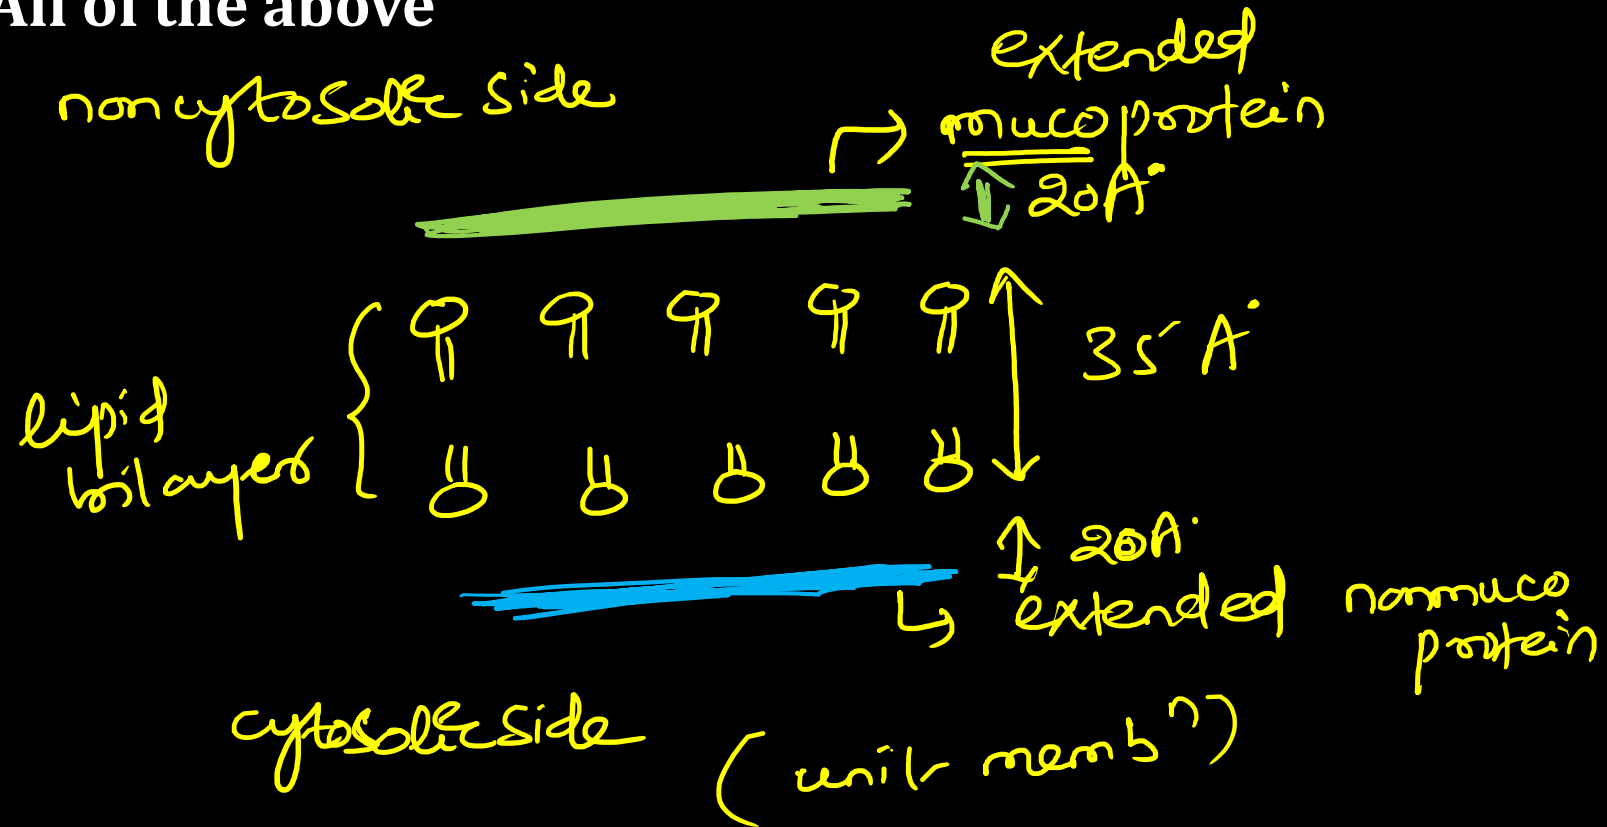 All of the above
noncytosolic side
extended
mucoprotein
20A°
35 A°
lipid
bilayer
20A°
extended nonmuco
protein
cytosolic side
(unit memb^n)